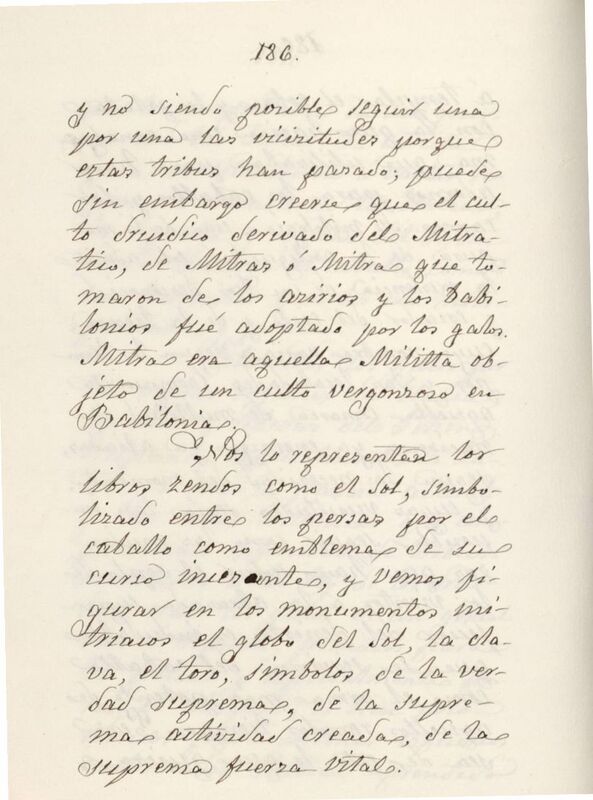 186.
y no siendo posible seguir una
por una las vicizitudes porque
estas tribus han pasado; puede
sin embargo creerse que el cul-
to druídico derivado del Mitra-
tico, de Mitras ó Mitra que to-
maron de los azirios y los Babi-
lonios fué adoptado por los galos.
Mitra era aquella Militta ob-
jéto de un culto vergonzoso en
Babilonia.
Nos lo representan los
libros zendos como el Sol, simbo-
lizado entre los persas por el
caballo como emblema de su
curso incezante, y vemos fi-
gurar en los monumentos mi-
triacos el globo del Sol, la cla-
va, el toro, simbolos de la ver-
dad suprema, de la supre-
ma actividad creada, de la
suprema fuerza vital.